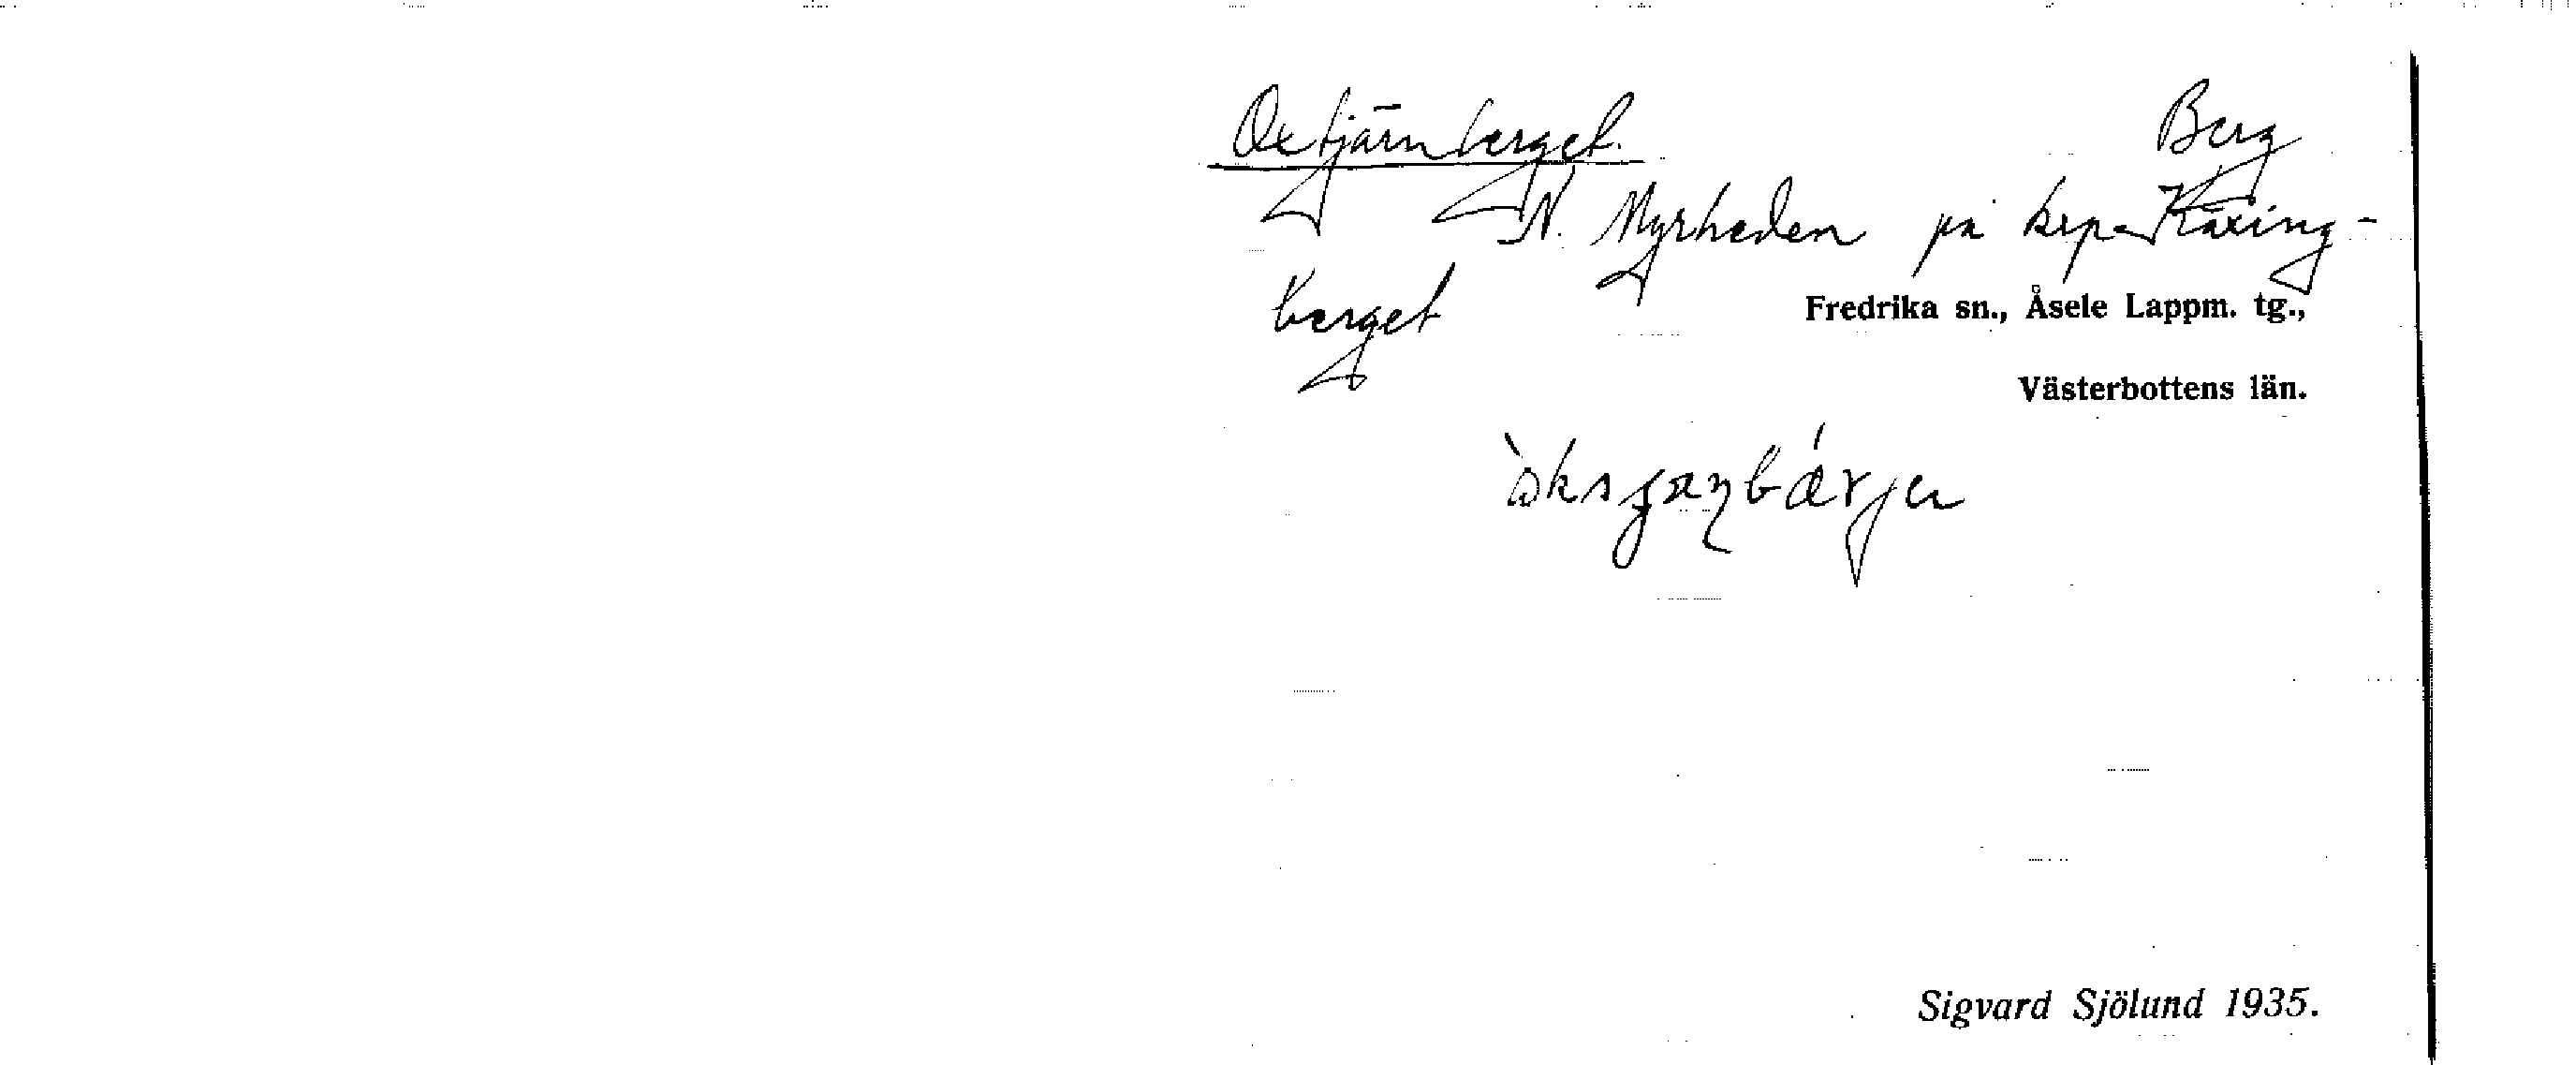 Oxtjärnberget. Berg
N. Myrheden på krp Käxing-
berget
Fredrika sn., Åsele Lappm. tg.,
Västerbottens län.
Sigvard Sjölund 1935.